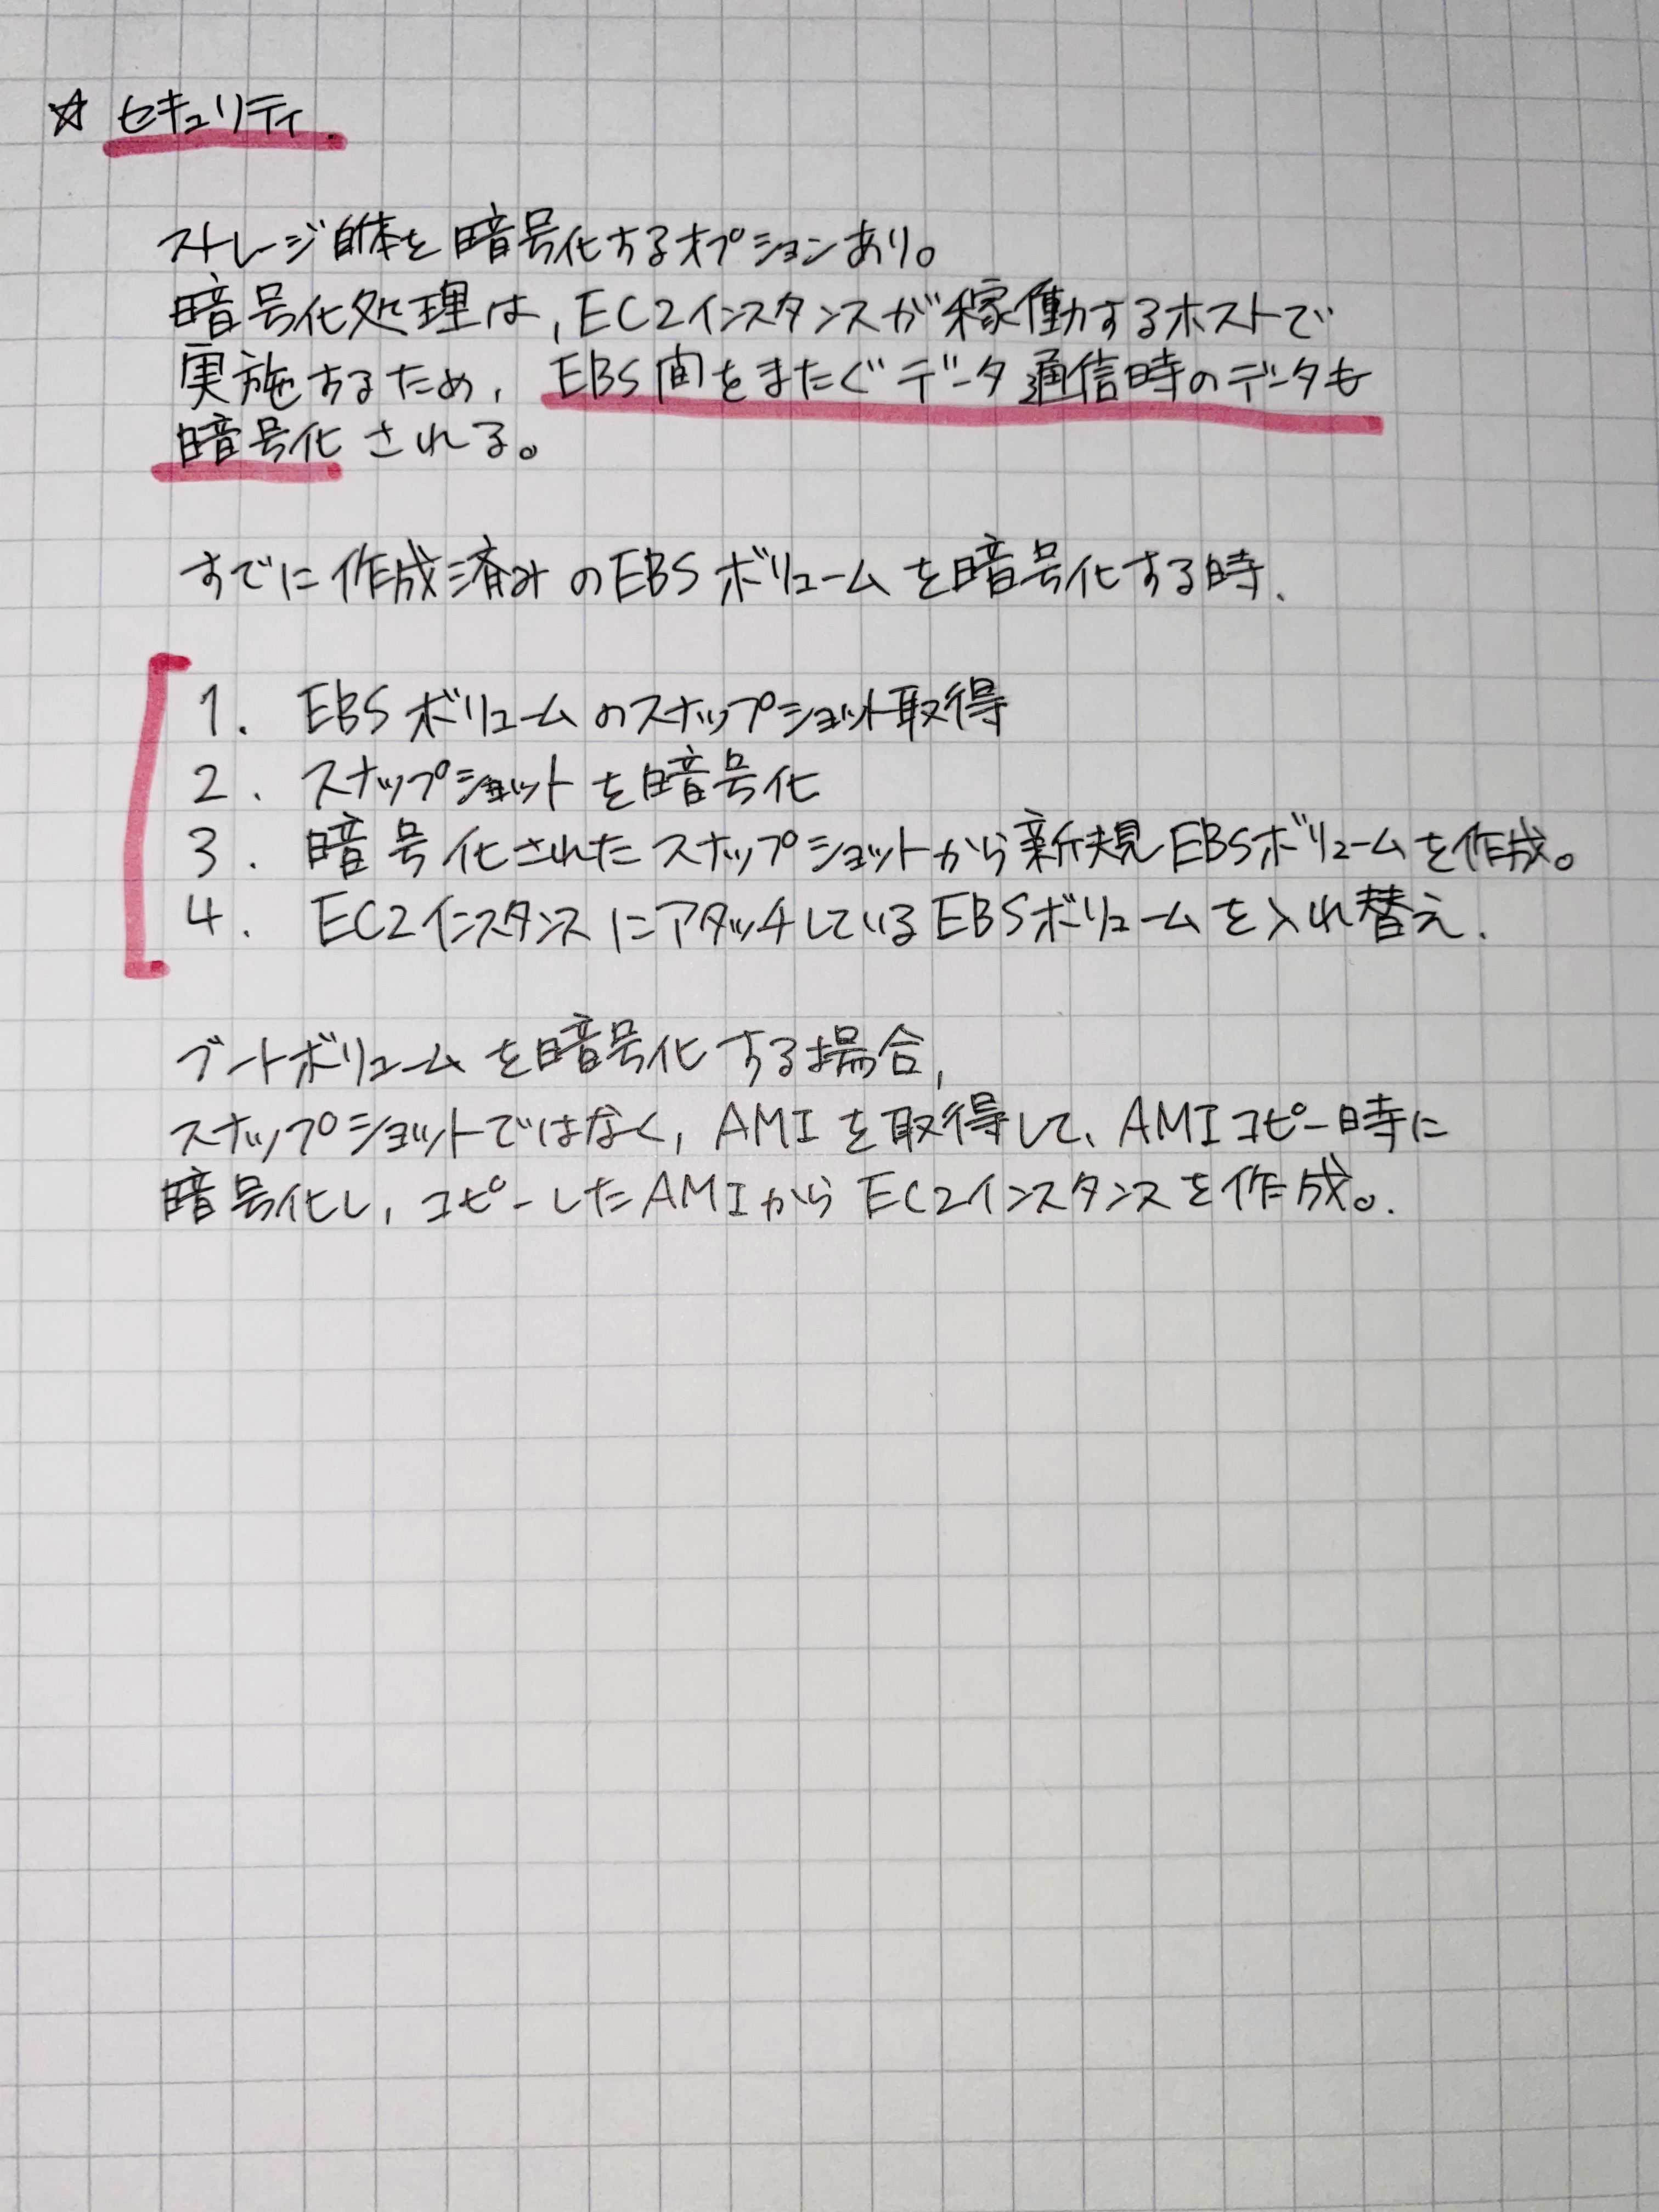 ☆ セキュリティ.
ストレージ自体を暗号化するオプションあり。
暗号化処理は, EC2インスタンスが稼働するホストで
実施するため, EBS間をまたぐデータ通信時のデータも
暗号化される。
すでに作成済みのEBSボリュームを暗号化する時.
1. EBSボリュームのスナップショット取得
2. スナップショットを暗号化
3. 暗号化されたスナップショットから新規EBSボリュームを作成。
4. EC2インスタンスにアタッチしているEBSボリュームを入れ替え.
ブートボリュームを暗号化する場合,
スナップショットではなく, AMIを取得して、AMIコピー時に
暗号化し, コピーしたAMIからEC2インスタンスを作成。.